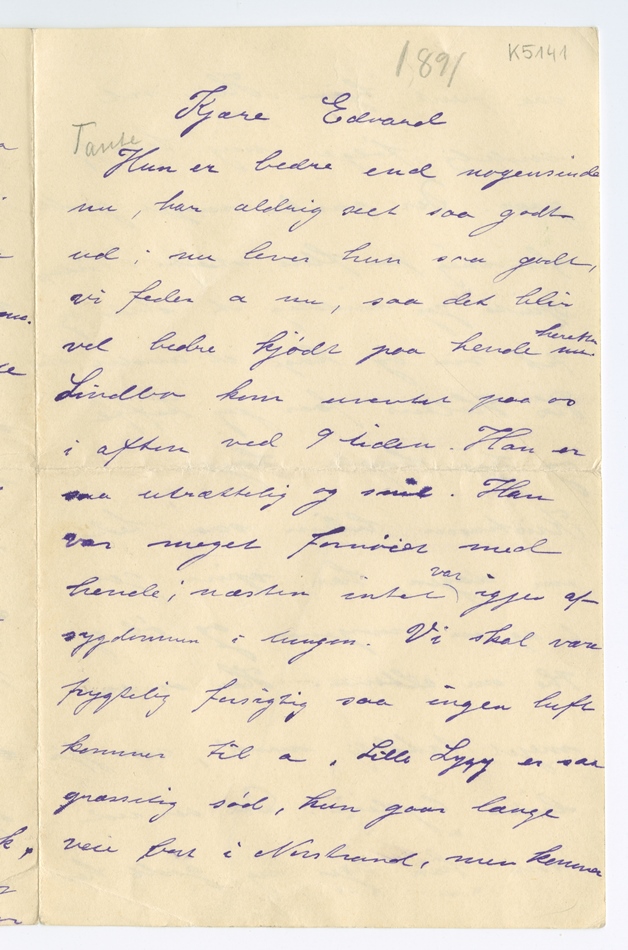 1891
K5141
Kjære Edvard
Tante
Hun er bedre end nogensinde
nu, har aldrig seet saa godt
ud; nu lever hun saa godt,
vi feder a nu, saa det blir
vel bedre kjødt paa hende herefter nu.
Lindboe kom uventet paa os
i aften ved 9 tiden. Han er
saa utrættelig og snil. Han
var meget fornøiet med
hende; næsten intet var igjen af
sygdommen i lungen. Vi skal være
frygtelig forsigtig saa ingen luft
kommer til a. Lille Lyyy er saa
græsselig sød, hun gaar lange
veie bort i Norstrand, men kommer